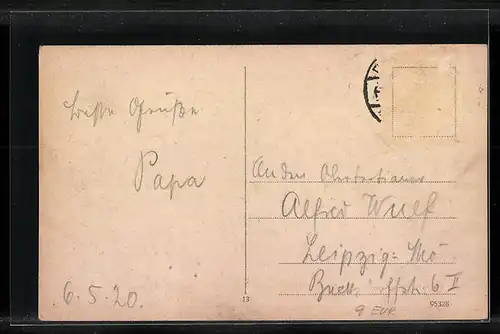 Beste Grüße
Papa
6.5.20.
An den Obertertianer
Alfred Wulf
Leipzig-Mö
6 II
13
95328
9 EUR